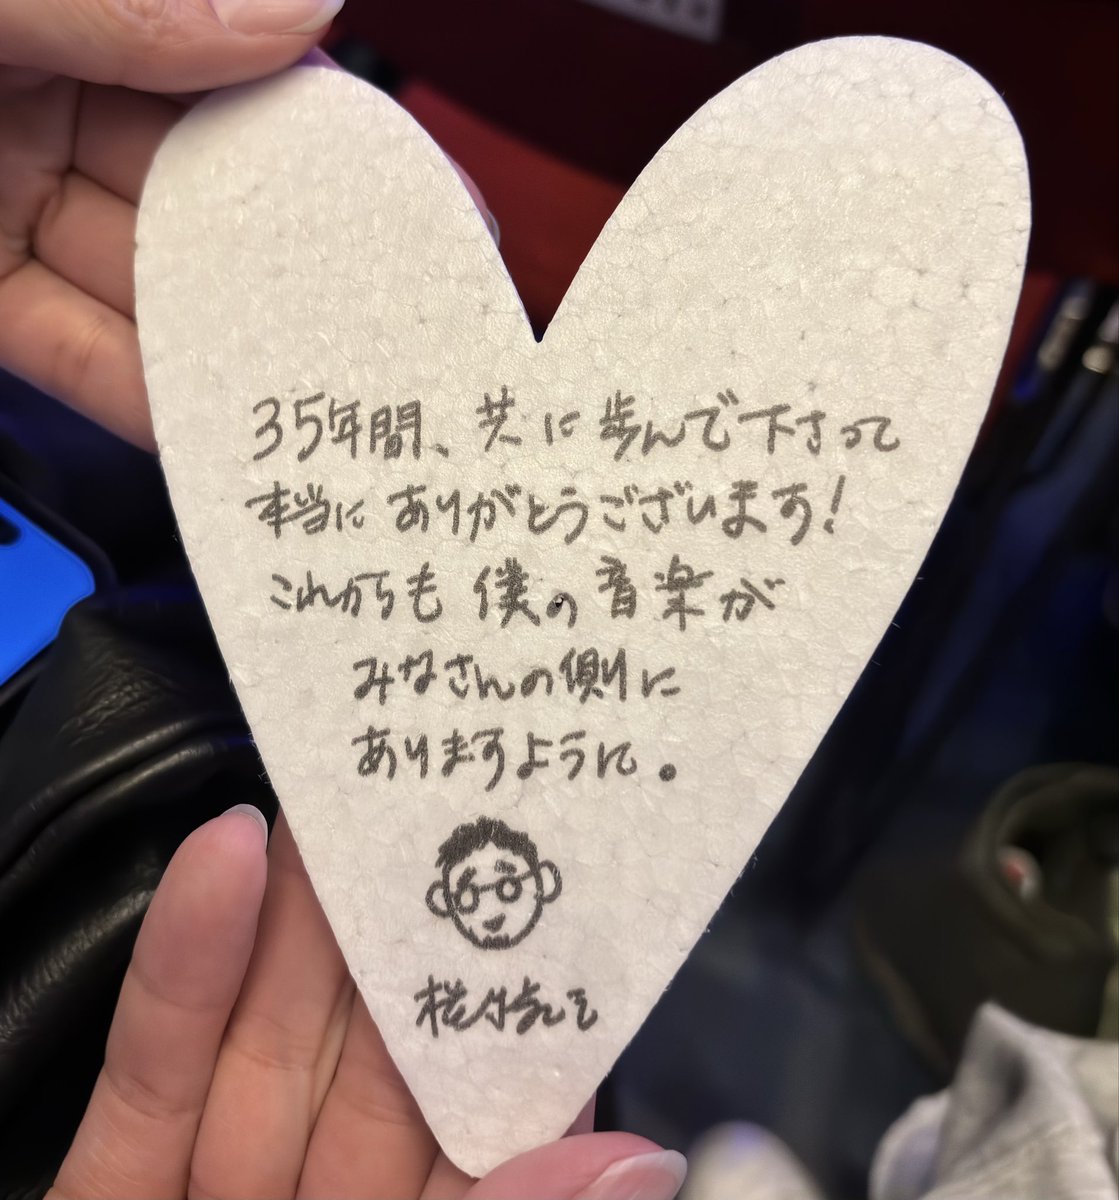 35年間、共に歩んで下さって
本当にありがとうございます!
これからも僕の音楽が
みなさんの側に
ありますように。